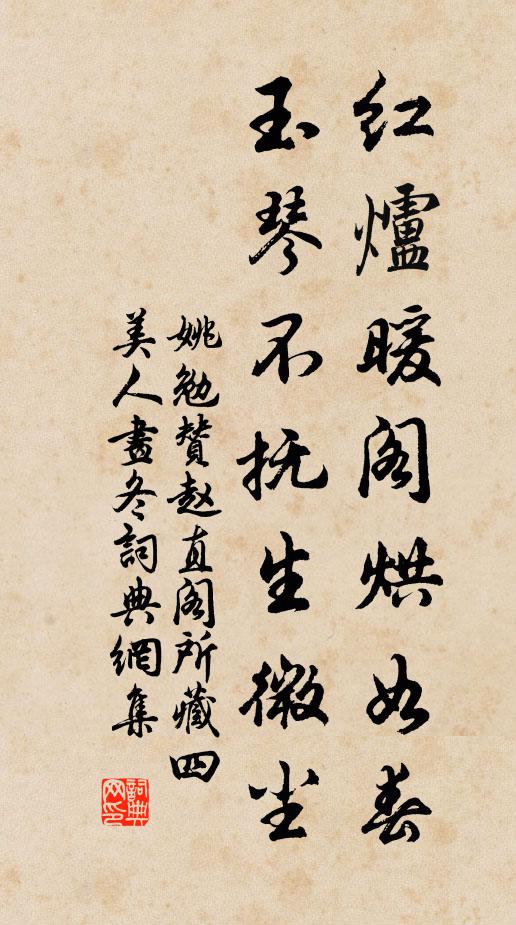 红爐暖阁烘如春
玉琴不抚生微尘
姚勉賛赵直阁所藏四
美人畫冬詞典網集
詞典网印